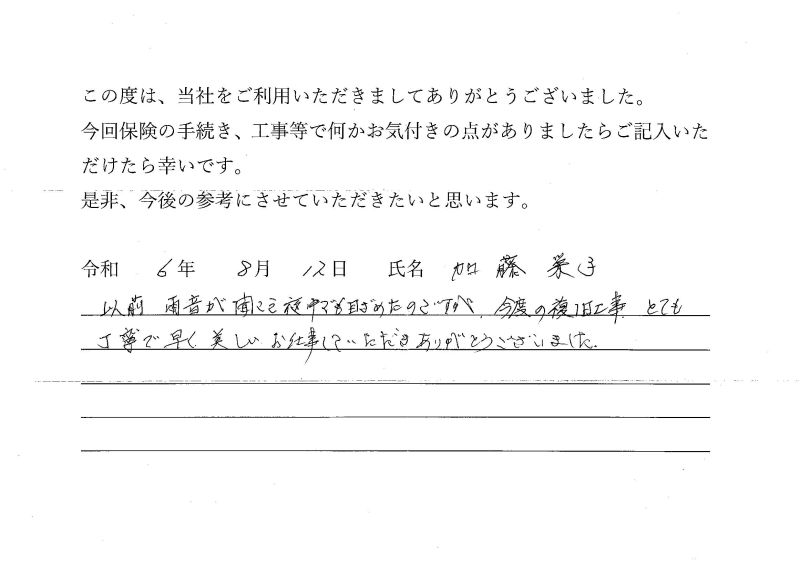 この度は、当社をご利用いただきましてありがとうございました。
今回保険の手続き、工事等で何かお気付きの点がありましたらご記入いた
だけたら幸いです。
是非、今後の参考にさせていただきたいと思います。
令和 6年 8月 12日 氏名 加藤 栄子
以前 雨音が 夜中でも目ざめたのですが、今度の復旧工事 とても
丁寧で早く 美しい お仕事していただきありがとうございました。